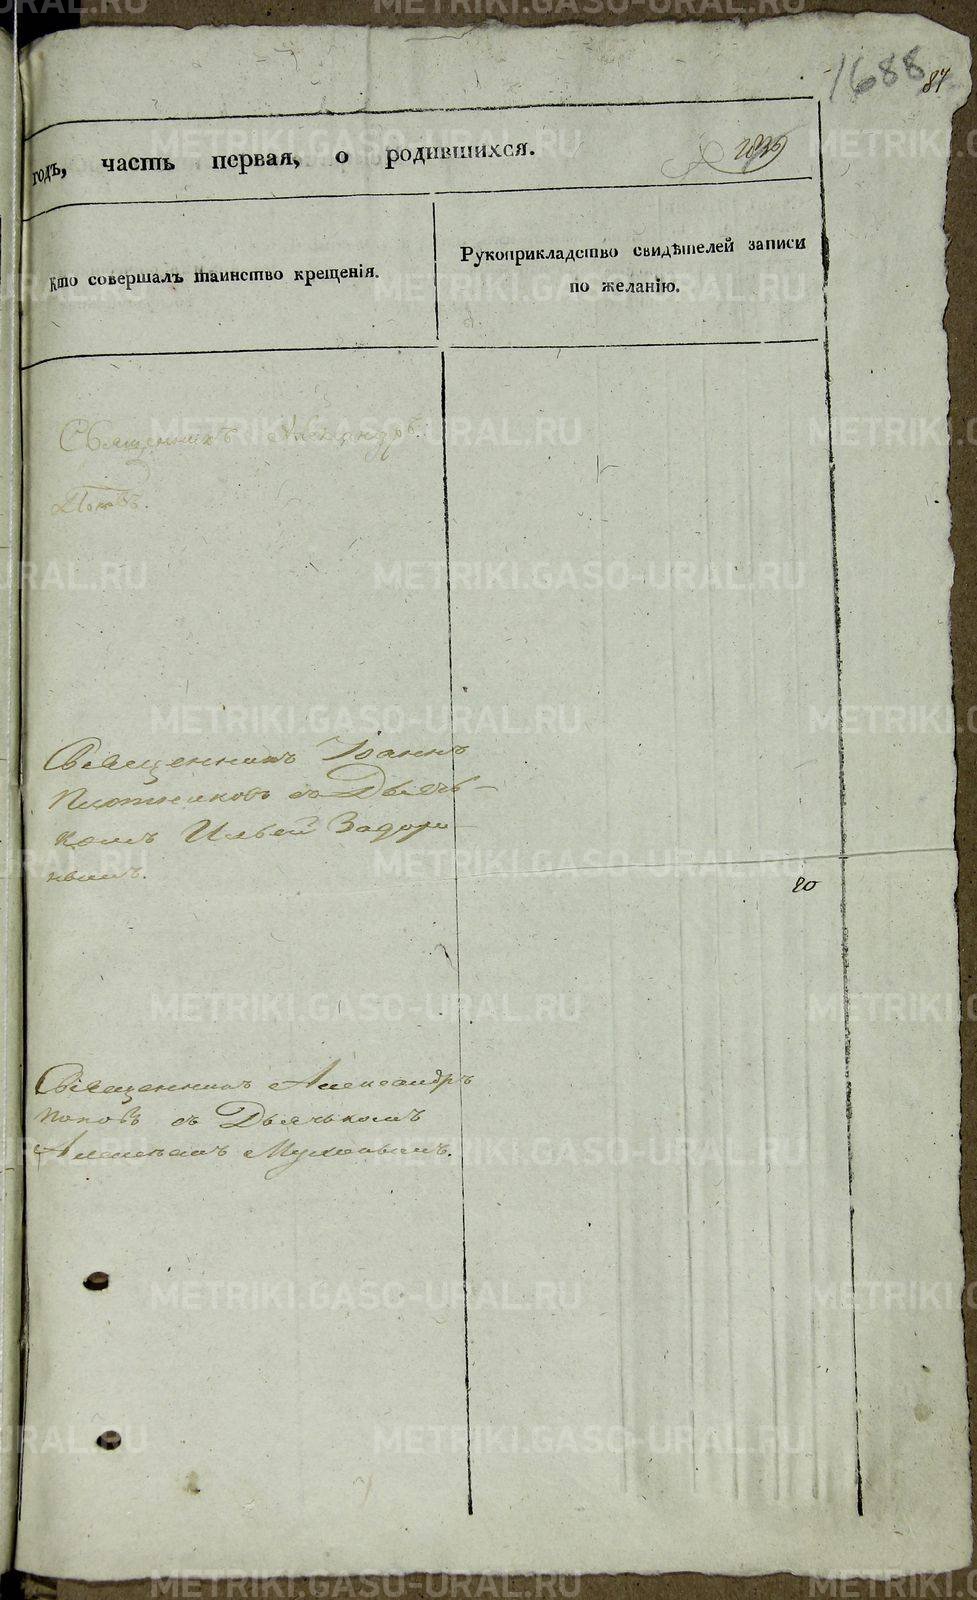 1688
87
годъ, часть первая, о родившихся.
кто совершалъ таинство крещенія.
Рукоприкладство свидѣтелей записи
по желанію.
Священникъ Александръ
Поповъ.
Священникъ Іоаннъ
Плотниковъ съ Дьячь-
комъ Ильей Задор-
нымъ.
20
Священникъ Александръ
Поповъ съ Дьячькомъ
METRIKI.GASO-URAL.RU